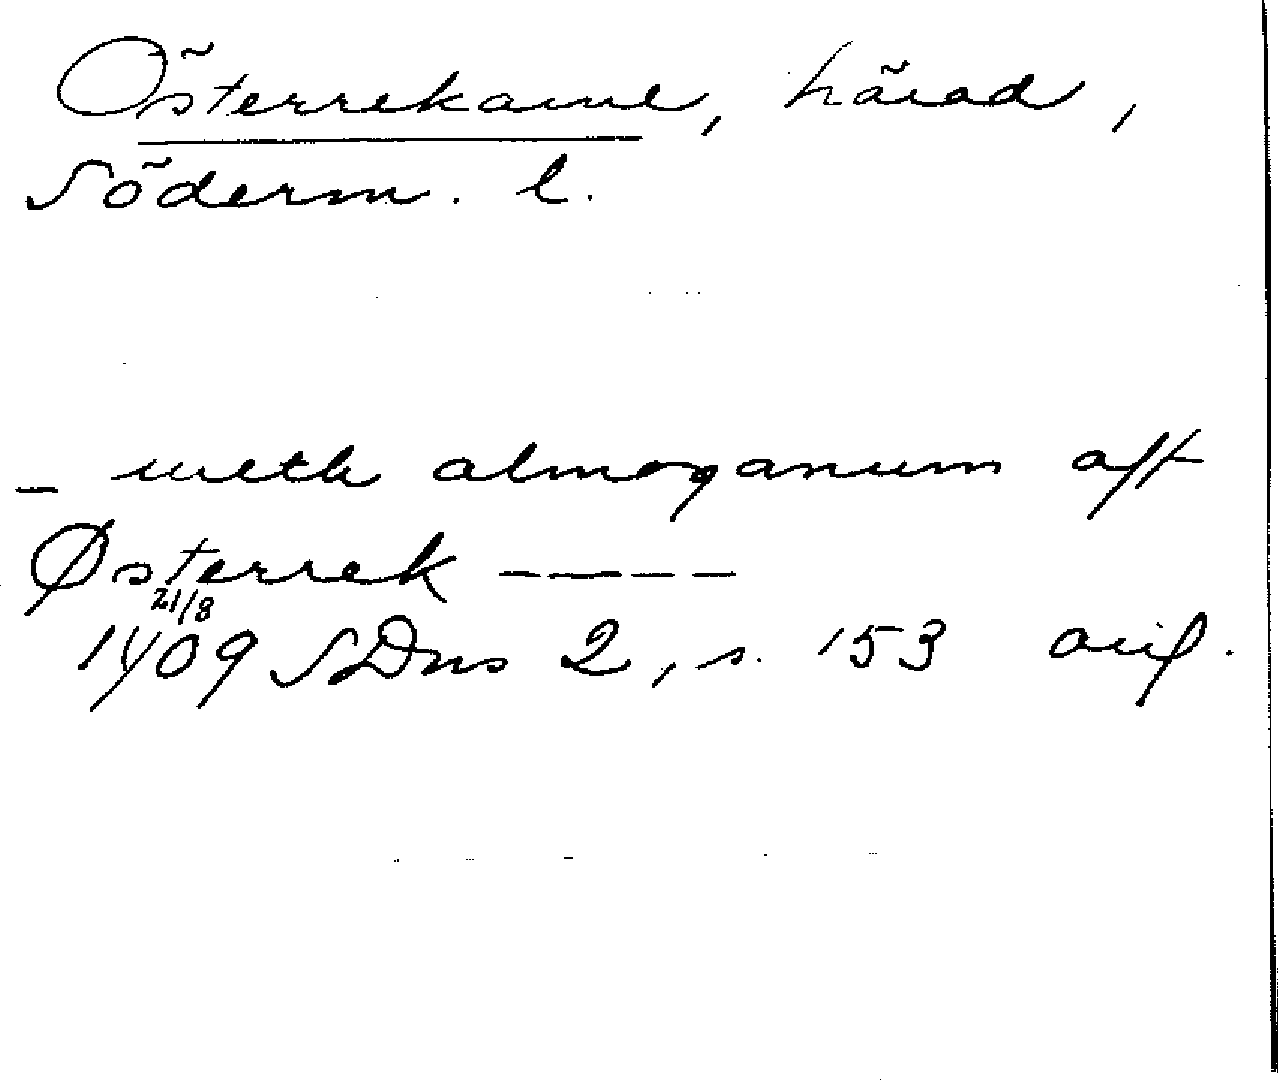 Österrekarne, härad,
Söderm. l.
– meth almoganum aff
Østerrek -----
21/8
1409 SDns 2, s. 153 orig.